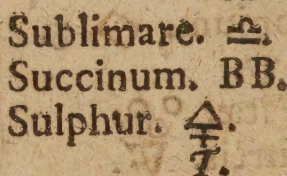 Sublimare. ♎.
Succinum. BB.
Sulphur. 🜍.